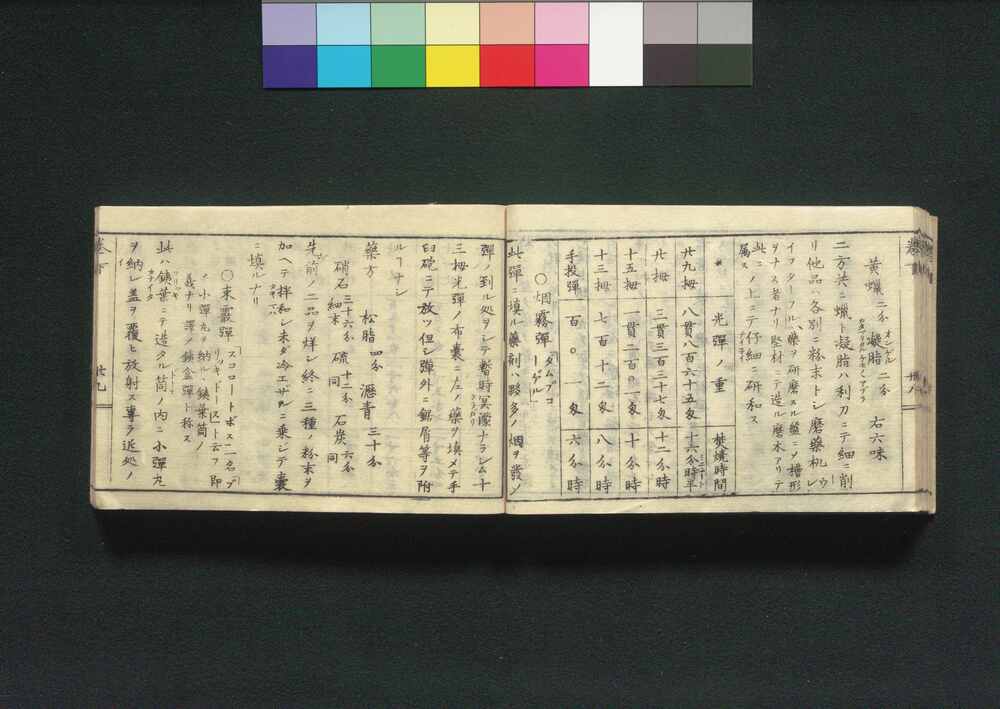 黄蝋 二分 凝脂 二分 右六味
二方共ニ蝋ト凝脂ハ利刀ニテ細ニ削
リ他品ハ各別ニ粉末トシ磨藥机 ウレ
イフターフル ハ藥ヲ研磨スル盤ニメ槽形
ヲナス者ナリ堅材ニテ造ル磨木アリテ
属ス 此ニノ上ニテ仔細ニ研和ス
光彈ノ重 焚焼時間
廿九拇 八貫八百六十五匁 十六分時半
廿拇 三貫三百三十七匁 十二分時
十五拇 一貫二百〇一匁 十分時
十三拇 七百十二匁 八分時
手投彈 百〇一匁 六分時
〇烟霧彈「ダムプコーゲル」
此彈ニ填ル藥剤ハ夥多ノ烟ヲ發メ
彈ノ到ル処ヲシテ暫時冥濛ナラシム十
三拇光彈ノ布嚢ニ左ノ藥ヲ填メテ手
臼砲ニテ放ツ但シ彈外ニ鋸屑等ヲ附
ルヿナシ
藥方 松脂 四分 瀝青 三十分
硝石 三十六分 細末 硫 十二分 同 石炭 六分 同
先前ノ二品ヲ烊シ終ニ三種ノ粉末ヲ
加ヘテ拌和シ未ダ冷エザルニ乗シテ嚢
ニ填ルナリ
〇束霰彈「スコロートボス」一名「ブ
リッキドース」ト云フ即
ノ小彈丸ヲ納ル丶鉄葉筒ノ
義ナリ譯メ鉄盒彈ト称ス
此ハ鉄葉ニテ造タル筒ノ内ニ小彈丸
ヲ納レ盖ヲ覆ヒ放射ス專ラ近処ノ
卷下
廿九